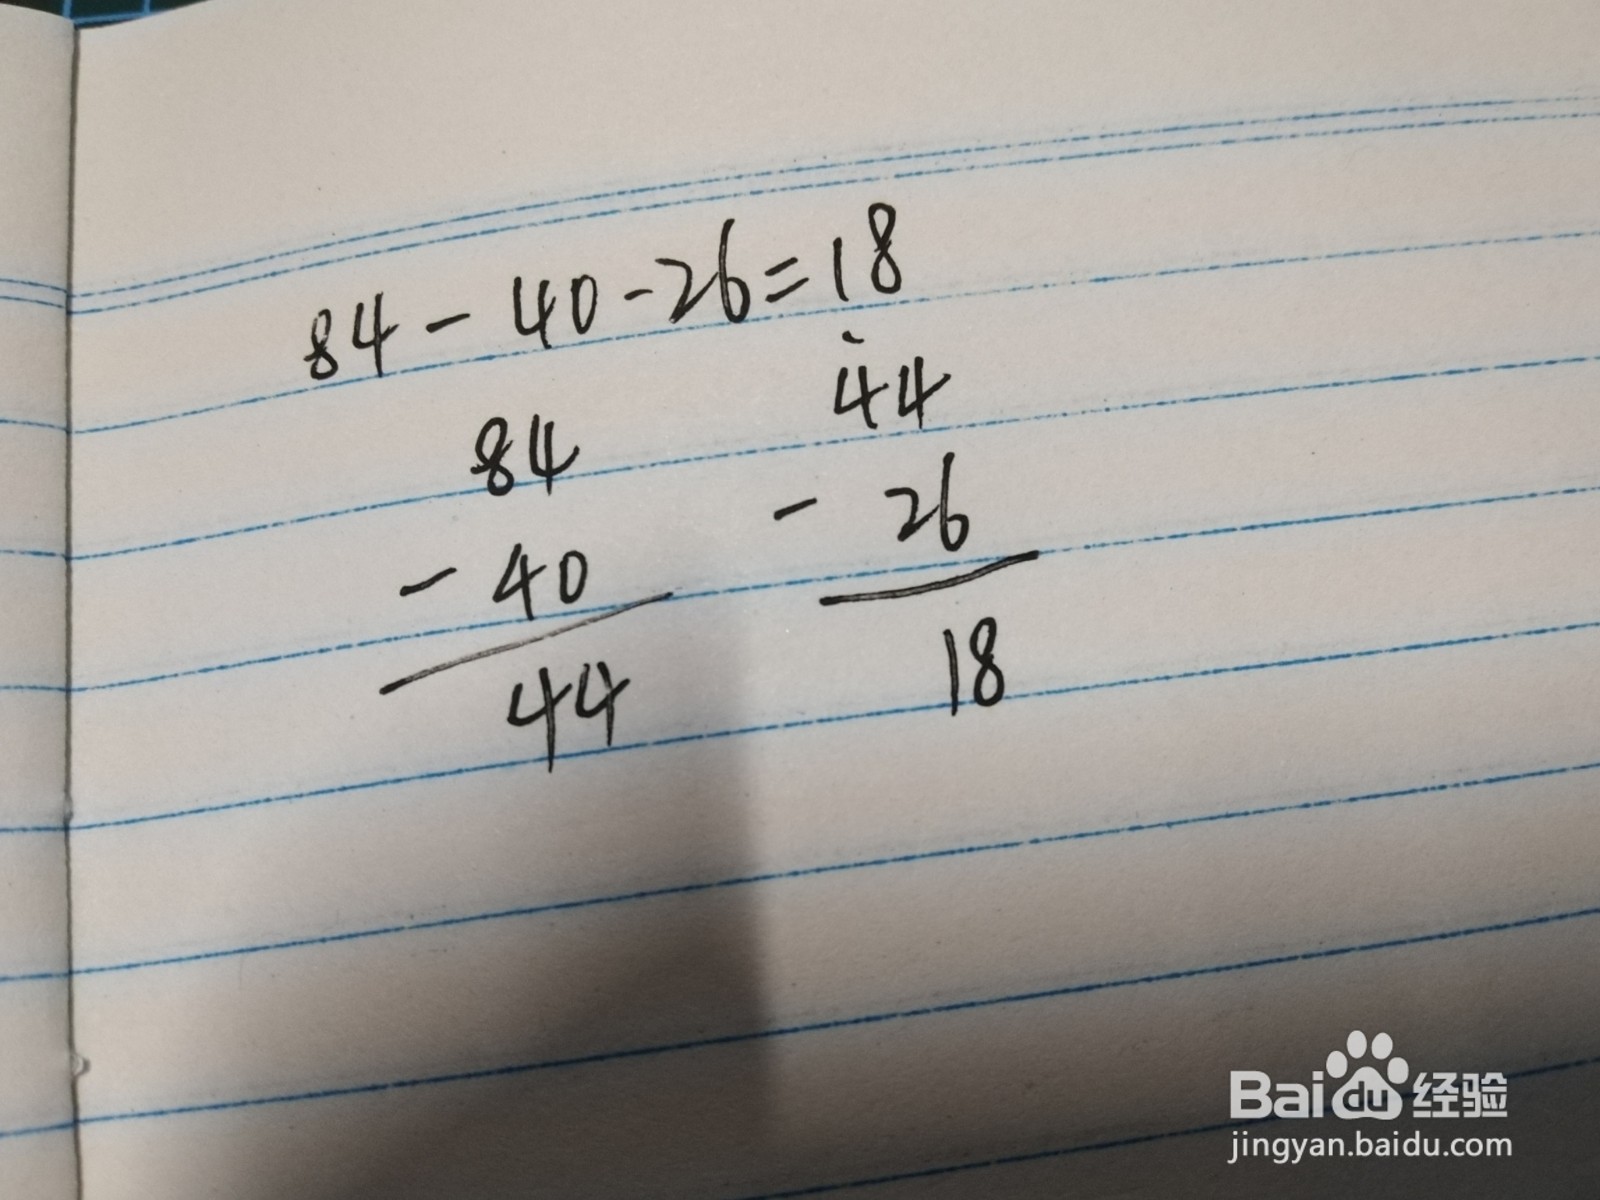 84-40-26=18
84
-40
44
44
-26
18
Baidu经验
jingyan.baidu.com